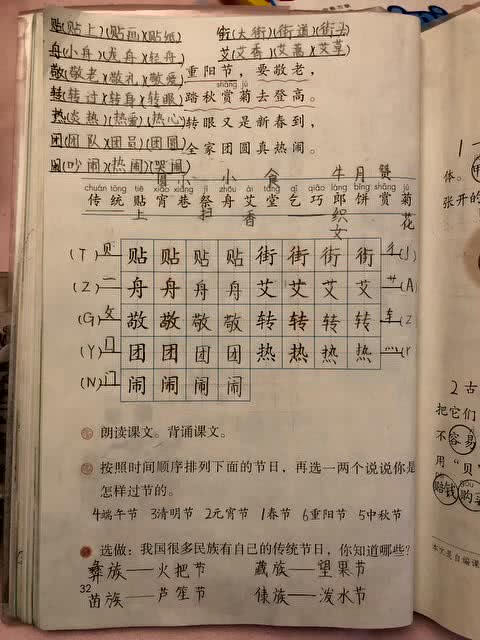 贴(贴上)(贴画)(贴纸) 街(大街)(街道)(街头)
舟(小舟)(龙舟)(轻舟) 艾(艾香)(艾蒿)(艾草)
敬(敬老)(敬礼)(敬爱) 重阳节，要敬老，
shǎng jú
转(转过)(转身)(转眼) 踏秋赏菊去登高。
热(炎热)(热爱)(热心) 转眼又是新春到，
团(团队)(团员)(团圆) 全家团圆真热闹。
闹(吵闹)(热闹)(哭闹)
小 食 牛 月 蟹
chuán tǒng tiē xiāo xiàng jì zhōu ài táng qǐ qiǎo láng bǐng shǎng jú
传 统 贴 宵 巷 祭 舟 艾 堂 乞 巧 郎 饼 赏 菊
上 扫 香 织女 花
(T) 贝 贴 贴 贴 贴 街 街 街 街 彳 (J)
(Z) 舟 舟 舟 舟 艾 艾 艾 艾 艹 (A)
(G) 攵 敬 敬 敬 敬 转 转 转 转 车 (Z)
(Y) 囗 团 团 团 团 热 热 热 热 灬 (r)
(N) 门 闹 闹 闹 闹
朗读课文。背诵课文。
按照时间顺序排列下面的节日，再选一两个说说你是
怎样过节的。
4端午节 3清明节 2元宵节 1春节 6重阳节 5中秋节
选做：我国很多民族有自己的传统节日，你知道哪些？
彝族——火把节 藏族——望果节
32
苗族——芦笙节 傣族——泼水节
体。
张开的
2 古
把它们
不容易
用“贝”
赔钱 购买
本文是自编课